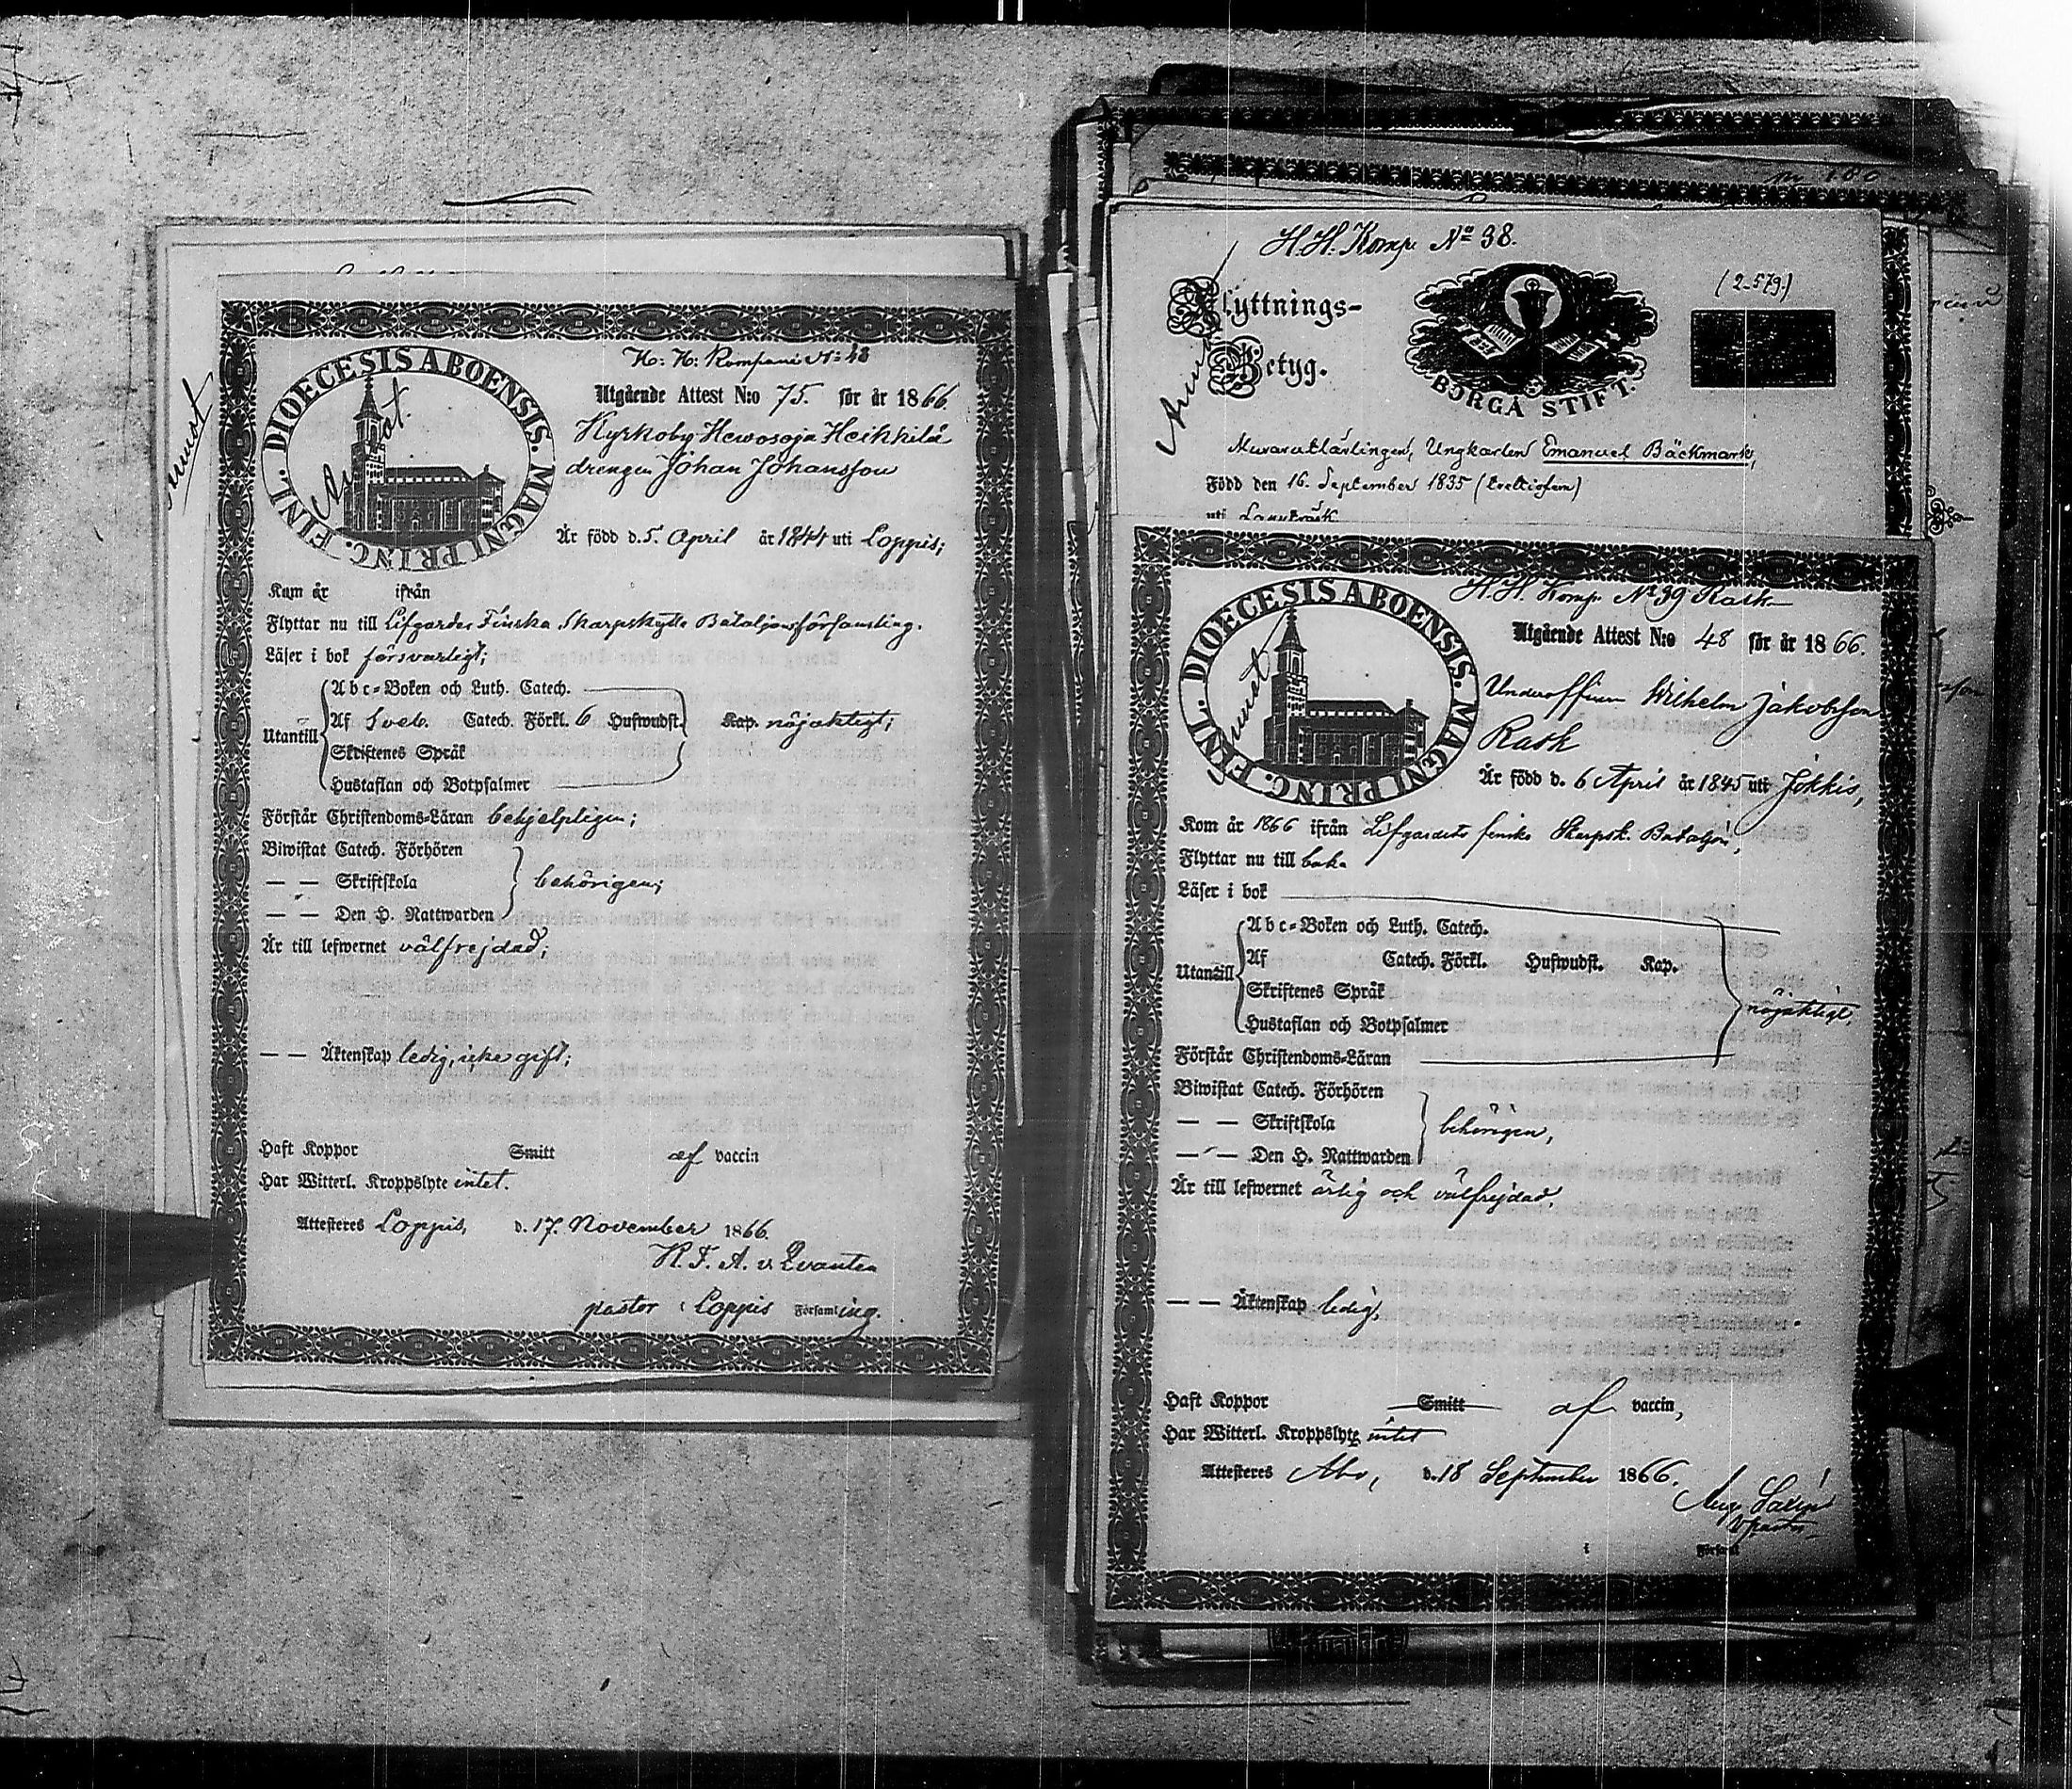 H. H. Kompani No 48
DIOECESIS ABOENSIS. MAGNI PRINC. FINL.
Utgående Attest N:o 75. för år 1866.
Kyrkoby Hewosoja Heikkilä
drengen Johan Johansson
Är född d. 5. April år 1844 uti Loppis;
Kom år ifrån
Flyttar nu till Lifgardes Finska Skarpskytte Bataljons församling.
Läser i bok försvarligt;
Utantill
Abc-Boken och Luth. Catech.
Af Sveb. Catech. Förkl. 6 Hufwudst. Kap. nöjaktigt;
Skriftenes Språk
Hustaflan och Botpsalmer
Förstår Christendoms-Läran behjelpligen;
Biwistat Catech. Förhören
— — Skriftskola behörigen;
— — Den H. Nattwarden
Är till lefwernet välfrejdad;
— — Äktenskap ledig, icke gift;
Haft Koppor Smitt af vaccin
Har Witterl. Kroppslyte intet.
Attesteres Loppis, d. 17. November 1866.
K. F. A. v. Qvanten
pastor i Loppis Församling.
H. H. Komp. No 38.
Flyttnings-
Betyg.
BORGÅ STIFT.
(2-579.)
Ungkarlen Emanuel Bäckmark,
Född den 16. September 1835 (trettiofem)
uti Lappträsk
H. H. Komp. No 39 Rask
DIOECESIS ABOENSIS. MAGNI PRINC. FINL.
Utgående Attest N:o 48 för år 1866.
Underofficern Wilhelm Jakobsson
Rask
Är född d. 6 April år 1845 uti Jokkis,
Kom år 1866 ifrån Lifgardets finska Skarpsk. Bataljon,
Flyttar nu till baka
Läser i bok
Utantill
Abc-Boken och Luth. Catech.
Af Catech. Förkl. Hufwudst. Kap.
Skriftenes Språk nöjaktigt,
Hustaflan och Botpsalmer
Förstår Christendoms-Läran
Biwistat Catech. Förhören
— — Skriftskola behörigen,
— — Den H. Nattwarden
Är till lefwernet ärlig och välfrejdad,
— — Äktenskap ledig,
Haft Koppor Smitt af vaccin,
Har Witterl. Kroppslyte intet
Attesteres Åbo, d. 18 September 1866.
v. pastor
i Församl